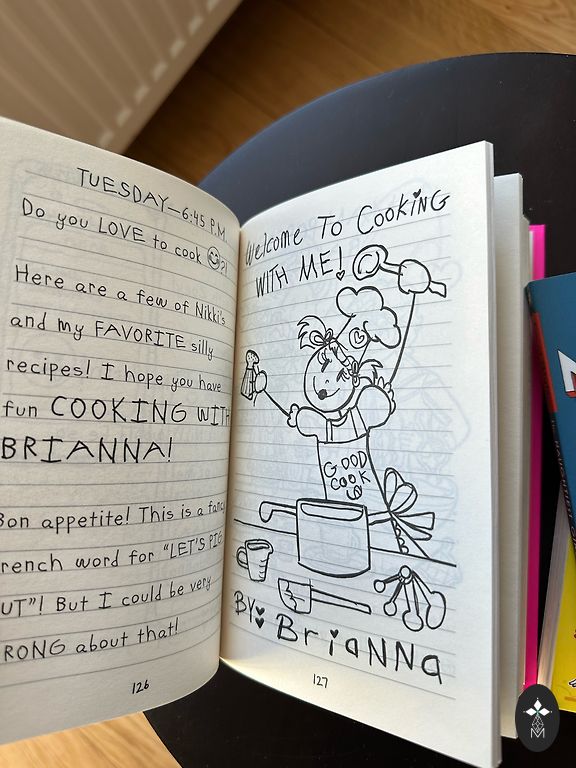 TUESDAY—6:45 P.M.
Do you LOVE to cook ?!
Here are a few of Nikki's
and my FAVORITE silly
recipes! I hope you have
fun COOKING WITH
BRIANNA!
Bon appetite! This is a fancy
rench word for "LET'S PIG
UT"! But I could be very
RONG about that!
126
Welcome To Cooking
WITH ME!
GOOD
COOK
BY: BriaNNa
127